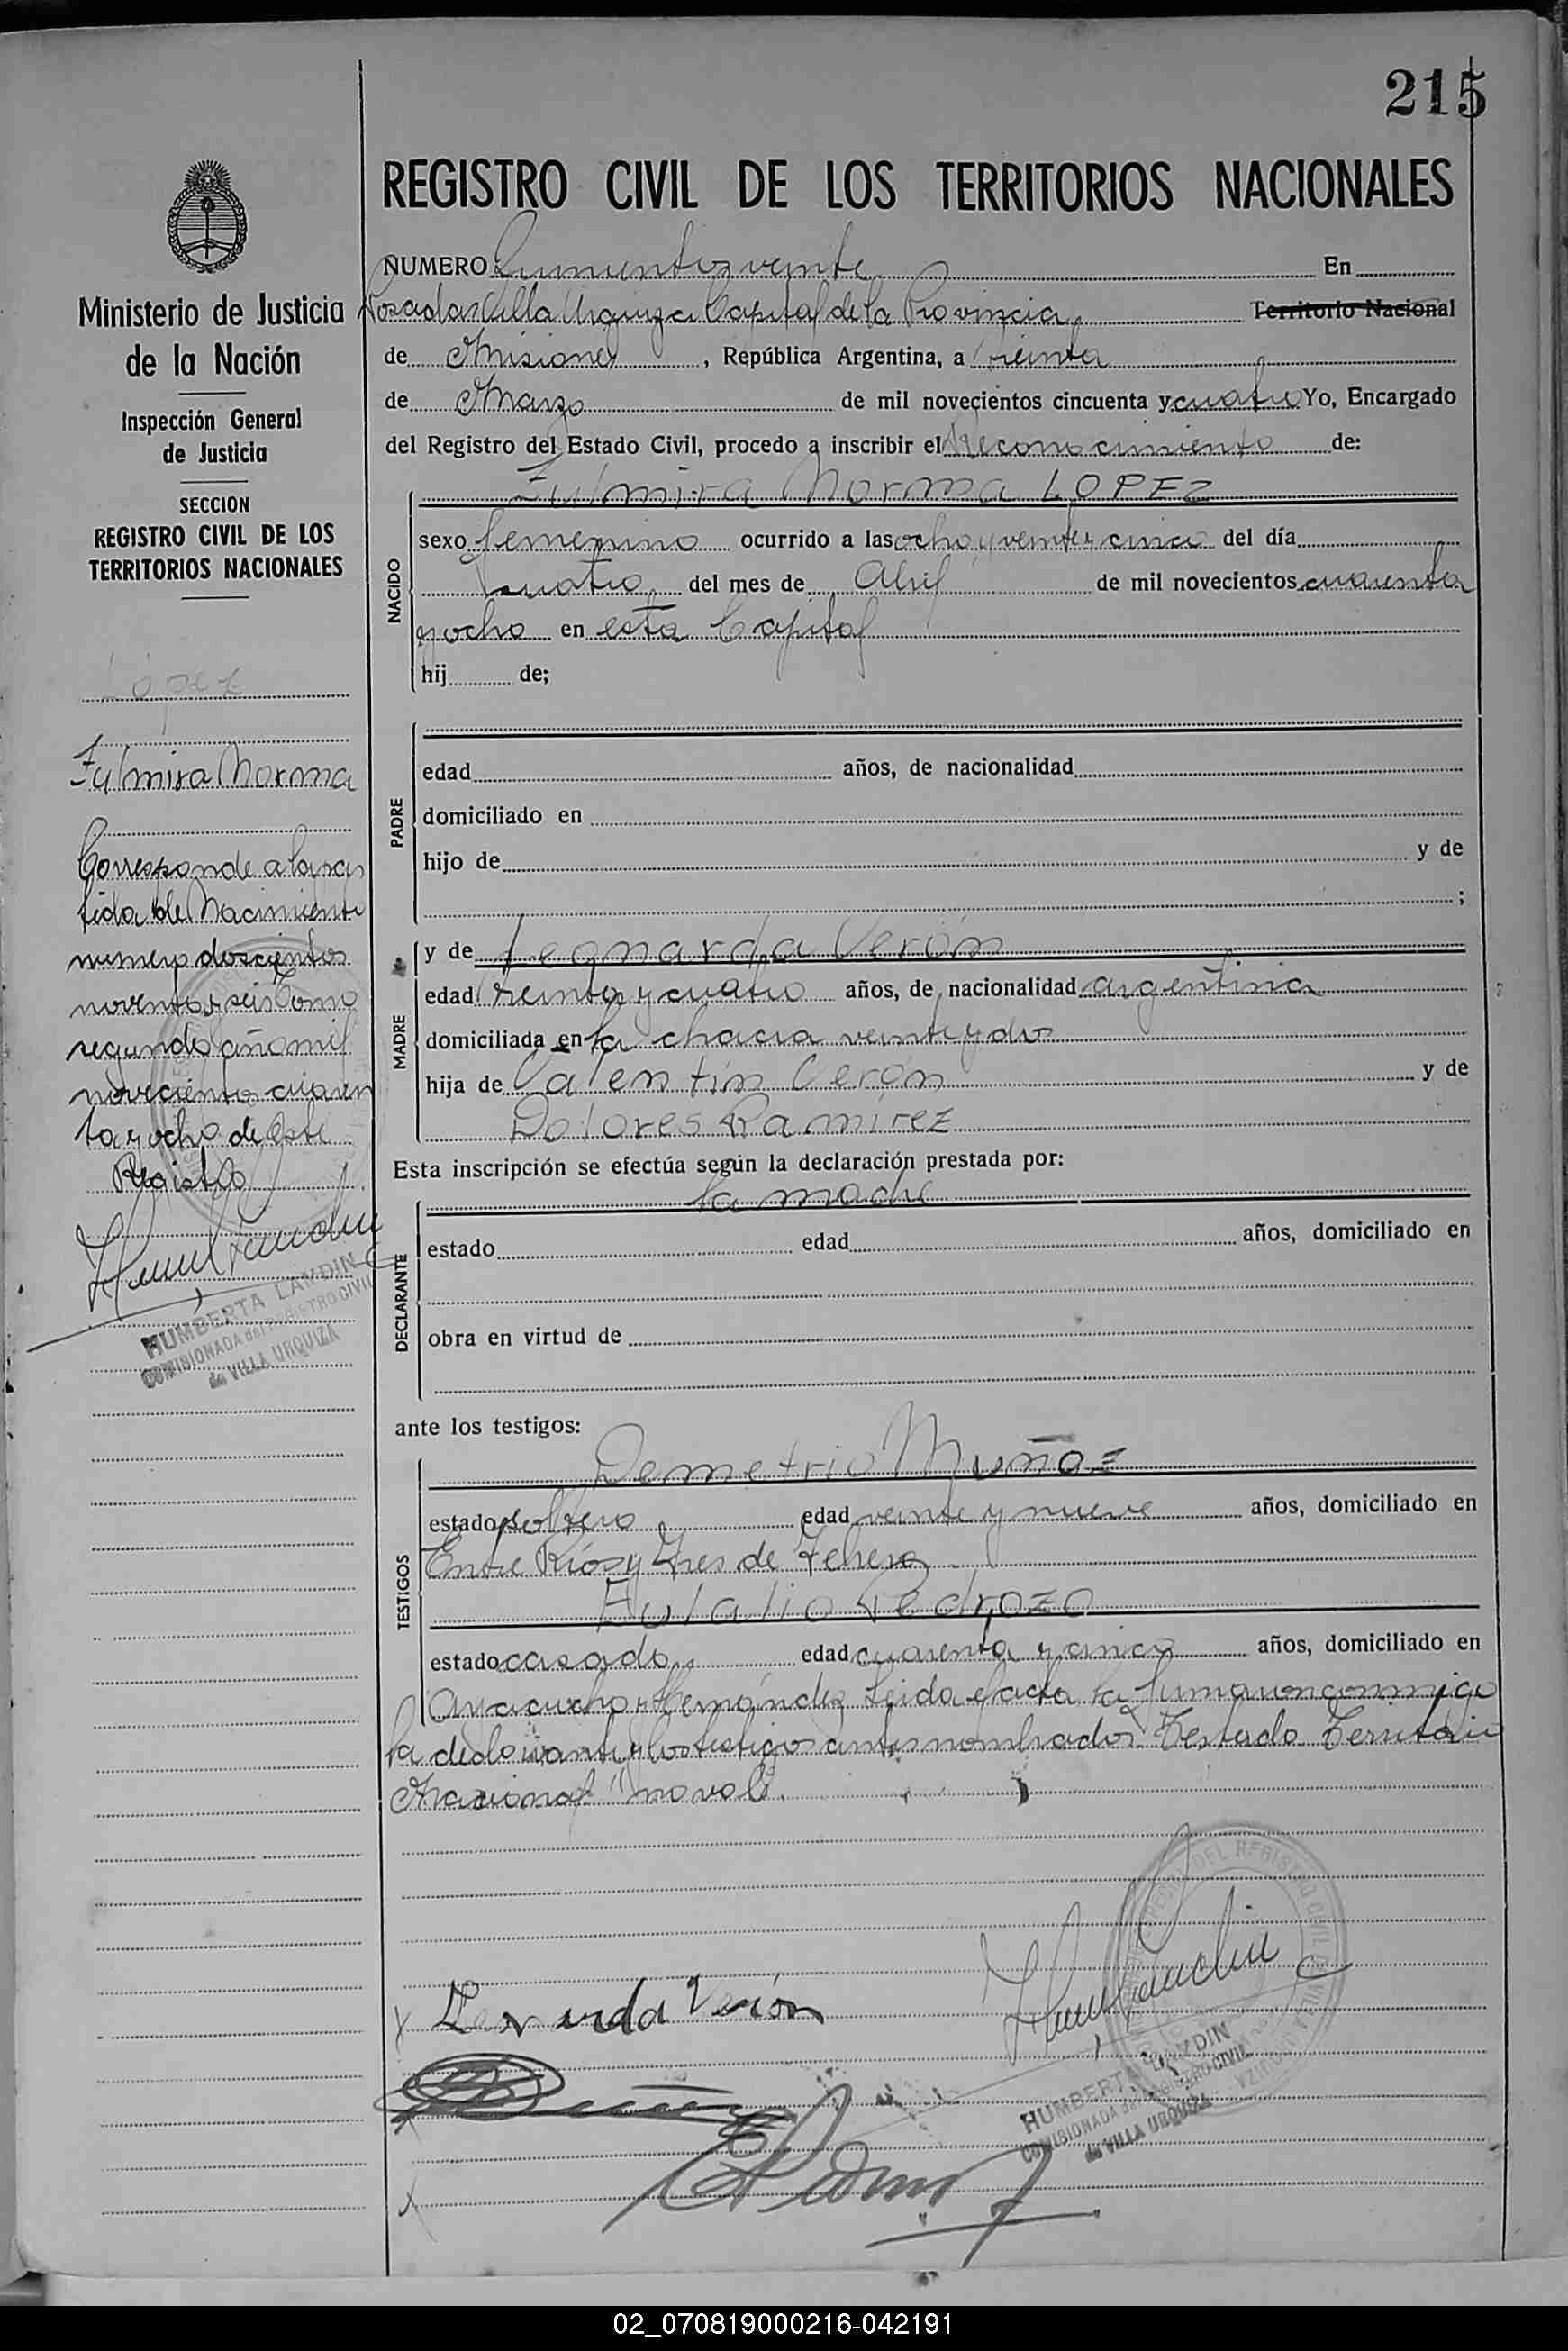 215
REGISTRO CIVIL DE LOS TERRITORIOS NACIONALES
NUMERO Quinientos veinte En
Posadas Villa Urquiza Capital de la Provincia Territorio Nacional
de Misiones, República Argentina, a treinta
de Marzo de mil novecientos cincuenta y cuatro Yo, Encargado
del Registro del Estado Civil, procedo a inscribir el Reconocimiento de:
Zulmira Norma LOPEZ
NACIDO
sexo femenino ocurrido a las ocho y veinte y cinco del día
cuatro del mes de Abril de mil novecientos cuarenta
y ocho en esta Capital
hij de;
PADRE
edad años, de nacionalidad
domiciliado en
hijo de y de
;
MADRE
y de Leonarda Verón
edad treinta y cuatro años, de nacionalidad argentina
domiciliada en la chacra veinte y dos
hija de Valentín Verón y de
Dolores Ramírez
Esta inscripción se efectúa según la declaración prestada por:
la madre
DECLARANTE
estado edad años, domiciliado en
obra en virtud de
ante los testigos:
TESTIGOS
Demetrio Muñoz
estado soltero edad veinte y nueve años, domiciliado en
Entre Ríos y Tres de Febrero
Eulalio Pedrozo
estado casado edad cuarenta y cinco años, domiciliado en
Ayacucho y Hernández Leida el acta la firmaron conmigo
la declarante y los testigos antes nombrados Testado Territorio
Nacional no vale.
Leonarda Verón
HUMBERTA LANDIN
COMISIONADA del REGISTRO CIVIL
de VILLA URQUIZA
Ministerio de Justicia
de la Nación
Inspección General
de Justicia
SECCION
REGISTRO CIVIL DE LOS
TERRITORIOS NACIONALES
López
Zulmira Norma
Corresponde a la par
tida de Nacimiento
numero doscientos
noventa y seis tomo
segundo año mil
novecientos cuaren
ta y ocho de este
Registro
HUMBERTA LANDIN
COMISIONADA del REGISTRO CIVIL
de VILLA URQUIZA
02_070819000216-042191